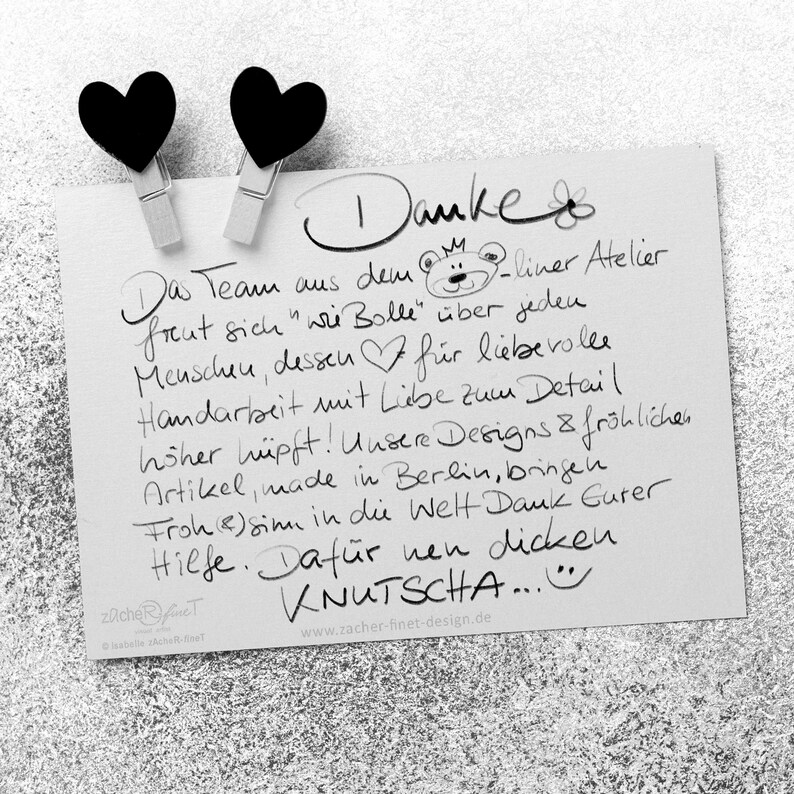 Danke
Das Team aus dem -liner Atelier
freut sich "wie Bolle" über jeden
Menschen, dessen für liebevolle
Handarbeit mit Liebe zum Detail
höher hüpft! Unsere Designs & fröhlichen
Artikel, made in Berlin, bringen
Froh(&)sinn in die Welt Dank Eurer
Hilfe. Dafür nen dicken
KNUTSCHA...
zAcheR-fineT
www.zacher-finet-design.de
© Isabella zAcheR-fineT